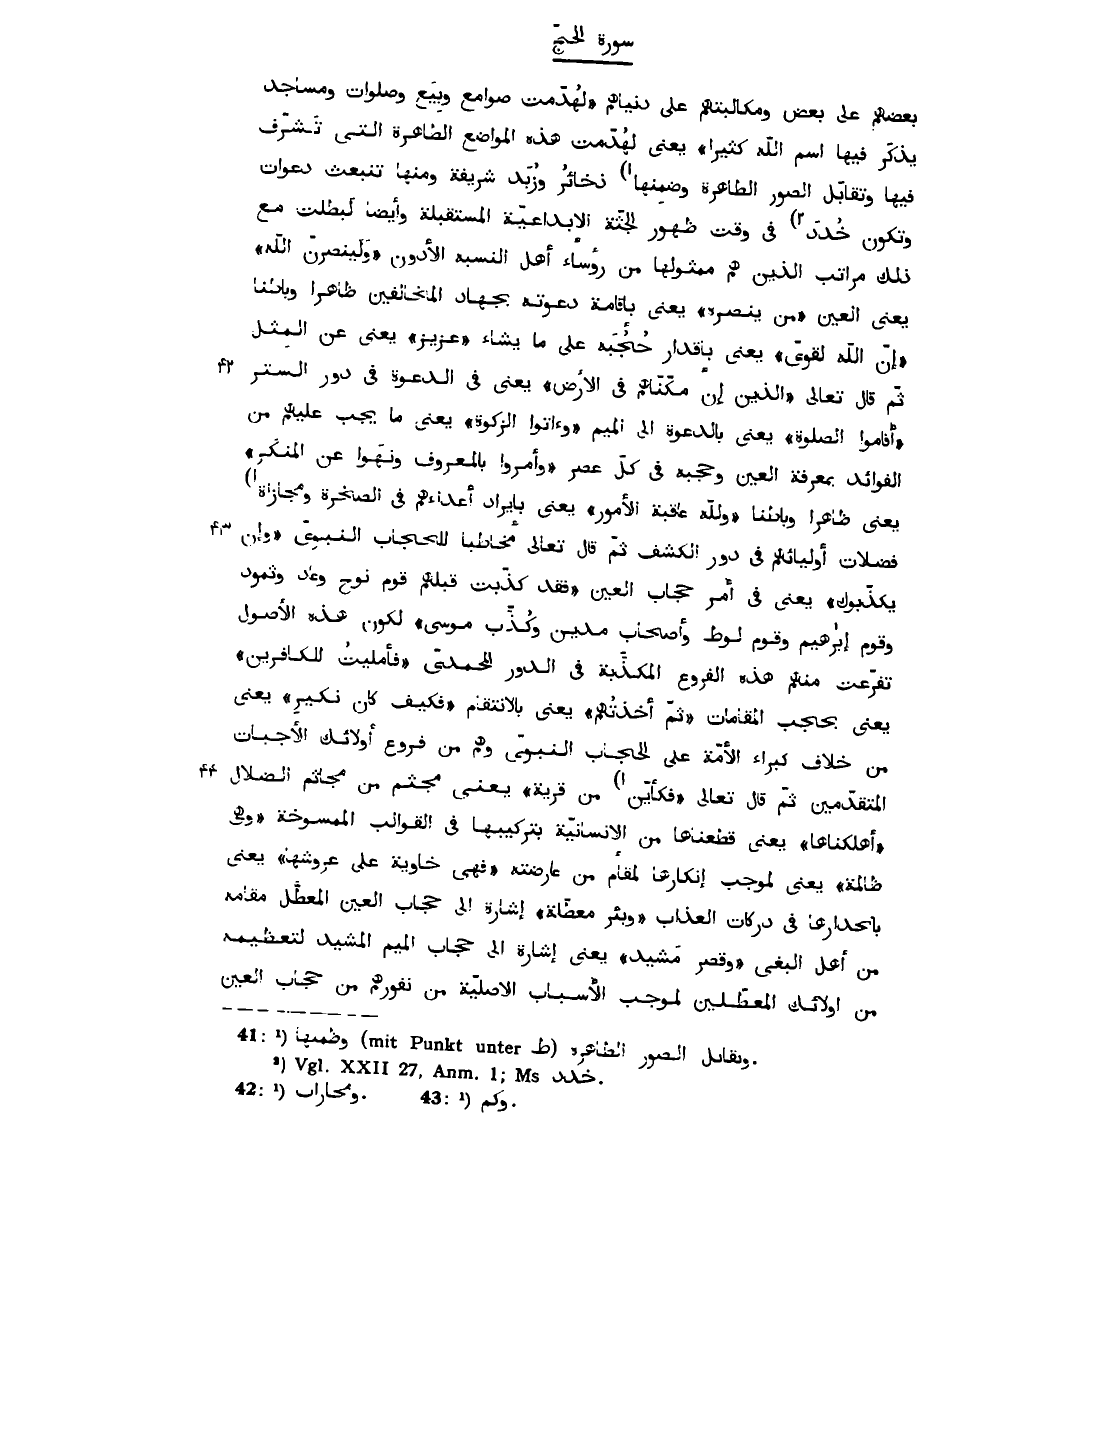 سورة الحجّ
بعضهم على بعض ومكالبتهم على دنياهم «لهُدّمت صوامع وبِيَع وصلوات ومساجد
يذكّر فيها اسم اللّه كثيرا» يعنى لهُدّمت هذه المواضع الطاهرة التى تَشرّف
فيها وتقابَل الصور الطاهرة وضمِنها¹) ذخائرُ وزُبَد شريفة ومنها تنبعث دعوات
وتكون خُددَ²) فى وقت ظهور الجثّة الابداعيّة المستقبلة وأيضا لَبطلت مع
ذلك مراتب الذين هم ممثولها من رؤساء أهل النسبه الأدون «وَلينصرنّ اللّه»
يعنى العين «من ينصره» يعنى بإقامة دعوته بجهاد المخالفين ظاهرا وباطنا
«إنّ اللّه لقوىّ» يعنى بإقدار حُجُبَه على ما يشاء «عزيز» يعنى عن المِثل
ثمّ قال تعالى «الذين إن مكّنّاهم فى الأرض» يعنى فى الدعوة فى دور الستر ۴۲
«أقاموا الصلوة» يعنى بالدعوة الى الميم «وءاتوا الزكوة» يعنى ما يجب عليهم من
الفوائد بمعرفة العين وحجبه فى كلّ عصر «وأمروا بالمعروف ونهَوا عن المنكَر»
يعنى ظاهرا وباطنا «وللّه عاقبة الأمور» يعنى بإيراد أعداءهم فى الصخرة ومجازاة¹)
فضلات أوليائهم فى دور الكشف ثمّ قال تعالى مُخاطبا للحجاب النبوىّ «وإن ۴۳
يكذّبوك» يعنى فى أمر حجاب العين «فقد كذّبت قبلهم قوم نوح وعاد وثمود
وقوم إبرٰهيم وقوم لوط وأصحاب مدين وكُذّب موسى» لكون هذه الأصول
تفرّعت منهم هذه الفروع المكذّبة فى الدور المحمدىّ «فأمليتُ للكافرين»
يعنى بحجب المقامات «ثمّ أخذتُهم» يعنى بالانتقام «فكيف كان نكيرِ» يعنى
من خلاف كبراء الأمّة على الحجاب النبوىّ وهم من فروع أولائك الأجبات
المتقدّمين ثمّ قال تعالى «فكأيّن¹) من قرية» يعنى مجثم من مجاثم الضلال ۴۴
«أهلكناها» يعنى قطعناها من الإنسانيّة بتركيبها فى القوالب الممسوخة «وهى
ظالمة» يعنى لموجب إنكارها لمقام من عارضته «فهى خاوية على عروشها» يعنى
بانحدارها فى دركات العذاب «وبئر معطّلة» إشارة الى حجاب العين المعطَّل مقامه
من أهل البغى «وقصر مَشيد» يعنى إشارة الى حجاب الميم المشيد لتعظيمه
من اولائك المعطّلين لموجب الأسباب الاصليّة من نفورهم من حجاب العين
41: ¹) وظمىها (mit Punkt unter ط) وىڡاىل الصور الطاهره.
²) Vgl. XXII 27, Anm. 1; Ms خدد.
42: ¹) ومحاراب. 43: ¹) وكم.